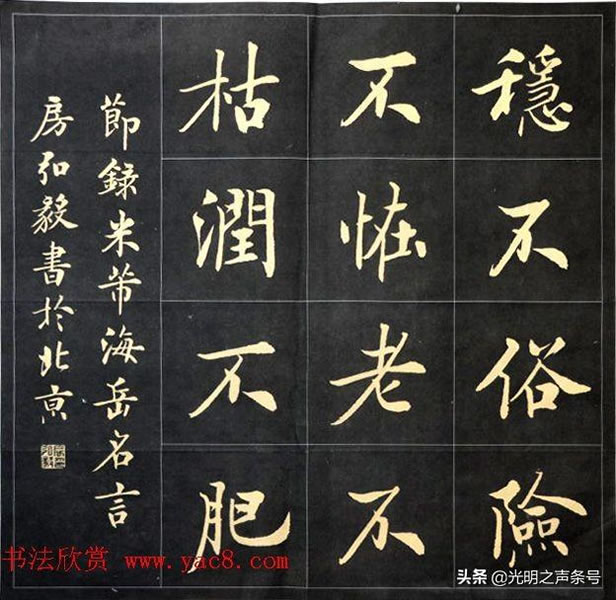 穩不俗險
不恠老不
枯潤不肥
節録米芾海岳名言
房弘毅書於北京
书法欣赏 www.yac8.com
头条 @光明之声条号